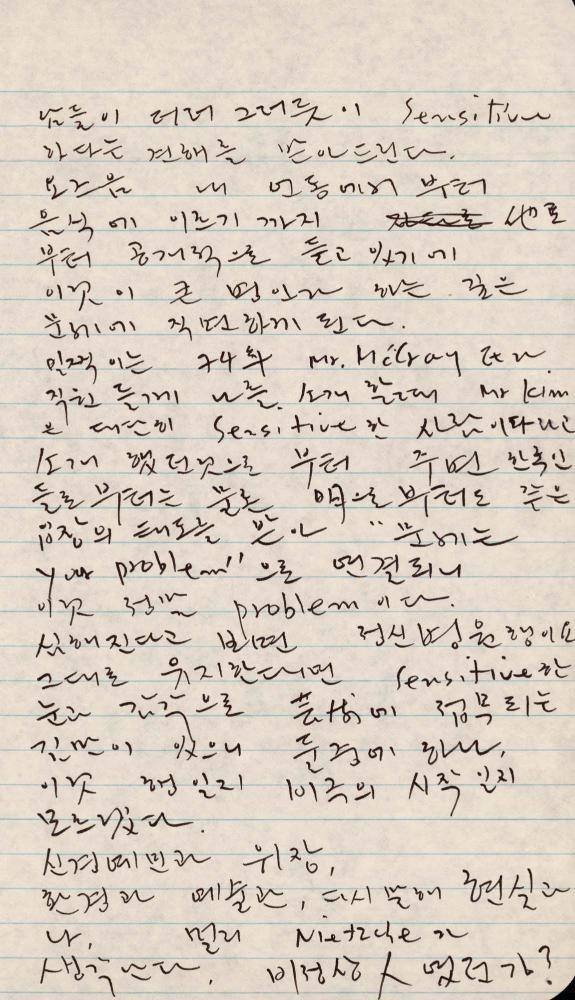 남들이 더더 그러듯이 Sensitive
하다는 견해를 받아드린다.
요즈음 내 언동에서 부터
음식에 이르기 까지 他로
부터 공개적으로 듣고 있기에
이것이 큰 병인가 하는 깊은
문제에 직면하게 된다.
일찍이는 74年 Mr. McCray
직원들께 나를 소개 할때 Mr Kim
은 대단히 Sensitive한 사람이다라고
소개 했던것으로 부터 주변 한국인
들로 부터는 물론 으로부터도 같은
입장의 태도를 받아 "문제는
your problem"으로 연결되니
이것 정말 problem이다.
심해진다고 보면 정신병원행이요
그대로 유지한다면 Sensitive한
눈과 감각으로 품에 접목되는
길만이 있으니 둘중에 하나,
이것 행일지 비극의 시작일지
모르겠다.
신경예민과 위장,
환경과 예술관, 다시말해 현실과
나, 멀리 Nietzche가
생각난다. 비정상人 였던가?